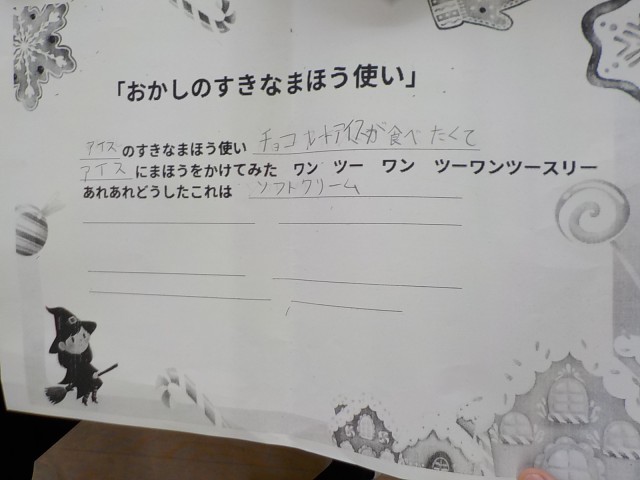 「おかしのすきなまほう使い」
アイスのすきなまほう使い チョコレートアイスが食べたくて
アイスにまほうをかけてみた ワン ツー ワン ツーワンツースリー
あれあれどうしたこれは ソフトクリーム